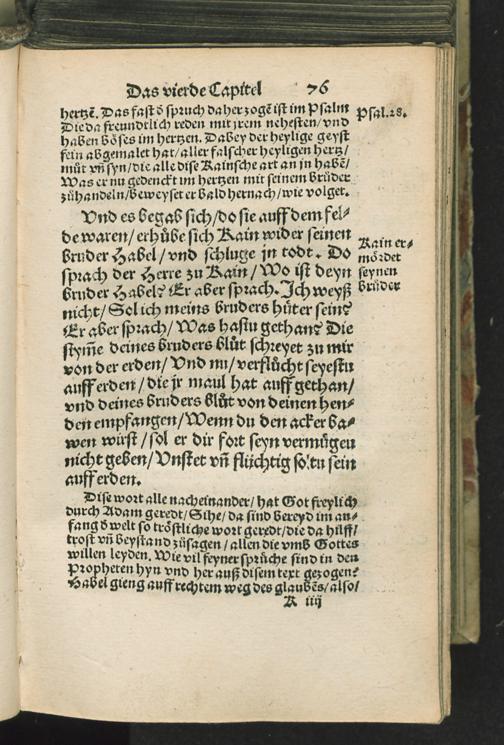 Das vierde Capitel 76
hertzē. Das fast d̄ spruch daher zogē ist im Psalm
Psal.28.
Die da freundtlich reden mit jrem nehesten/ vnd
haben bóses im hertzen. Dabey der heylige geyst
fein abgemalet hat/ aller falscher heyligen hertz/
můt vn̄ syn/ die alle dise Kainsche art an jn habē/
Was er nu gedenckt im hertzen mit seinem brůder
zůhandeln/ beweyset er bald hernach/ wie volget.
Vnd es begab sich/ do sie auff dem fel-
de waren/ erhůbe sich Kain wider seinen
bruder Habel/ vnd schluge jn todt. Do
sprach der Herre zu Kain/ Wo ist deyn
bruder Habel? Er aber sprach. Ich weyß
nicht/ Sol ich meins bruders hůter sein?
Er aber sprach/ Was hastu gethan? Die
stym̄e deines bruders blůt schreyet zu mir
von der erden/ Vnd nu/ verflůcht seyestu
auff erden/ die jr maul hat auff gethan/
vnd deines bruders blůt von deinen hen-
den empfangen/ Wenn du den acker ba-
wen wirst/ sol er dir fort seyn vermůgen
nicht geben/ Vnstet vn̄ flüchtig soltu sein
auff erden.
Kain er-
mördet
seynen
brůder
Dise wort alle nacheinander/ hat Got freylich
durch Adam geredt/ Sihe/ da sind bereyd im an-
fang d̄ welt so tröstliche wort geredt/ die da hilff/
trost vn̄ beystand zůsagen/ allen die vmb Gottes
willen leyden. Wie vil feyner sprüche sind in den
Propheten hyn vnd her auß disem text gezogen?
Habel gieng auff rechtem weg des glaubēs/ also/
K iiij